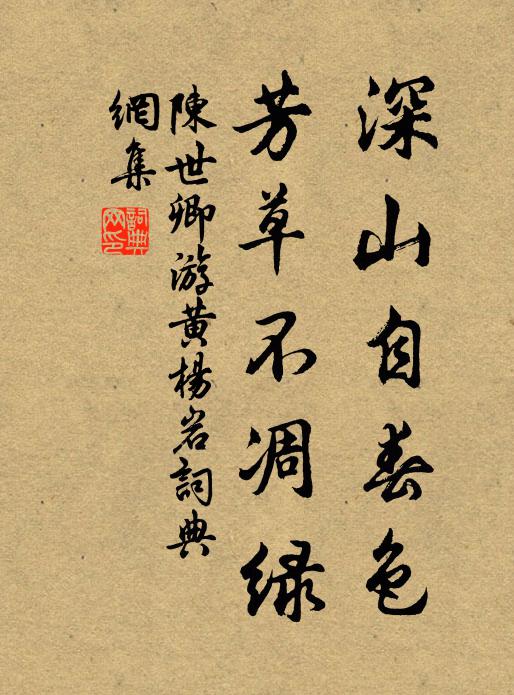 深山自春色
芳草不凋綠
陳世卿游黃楊岩詞典
網集
詞典
网印